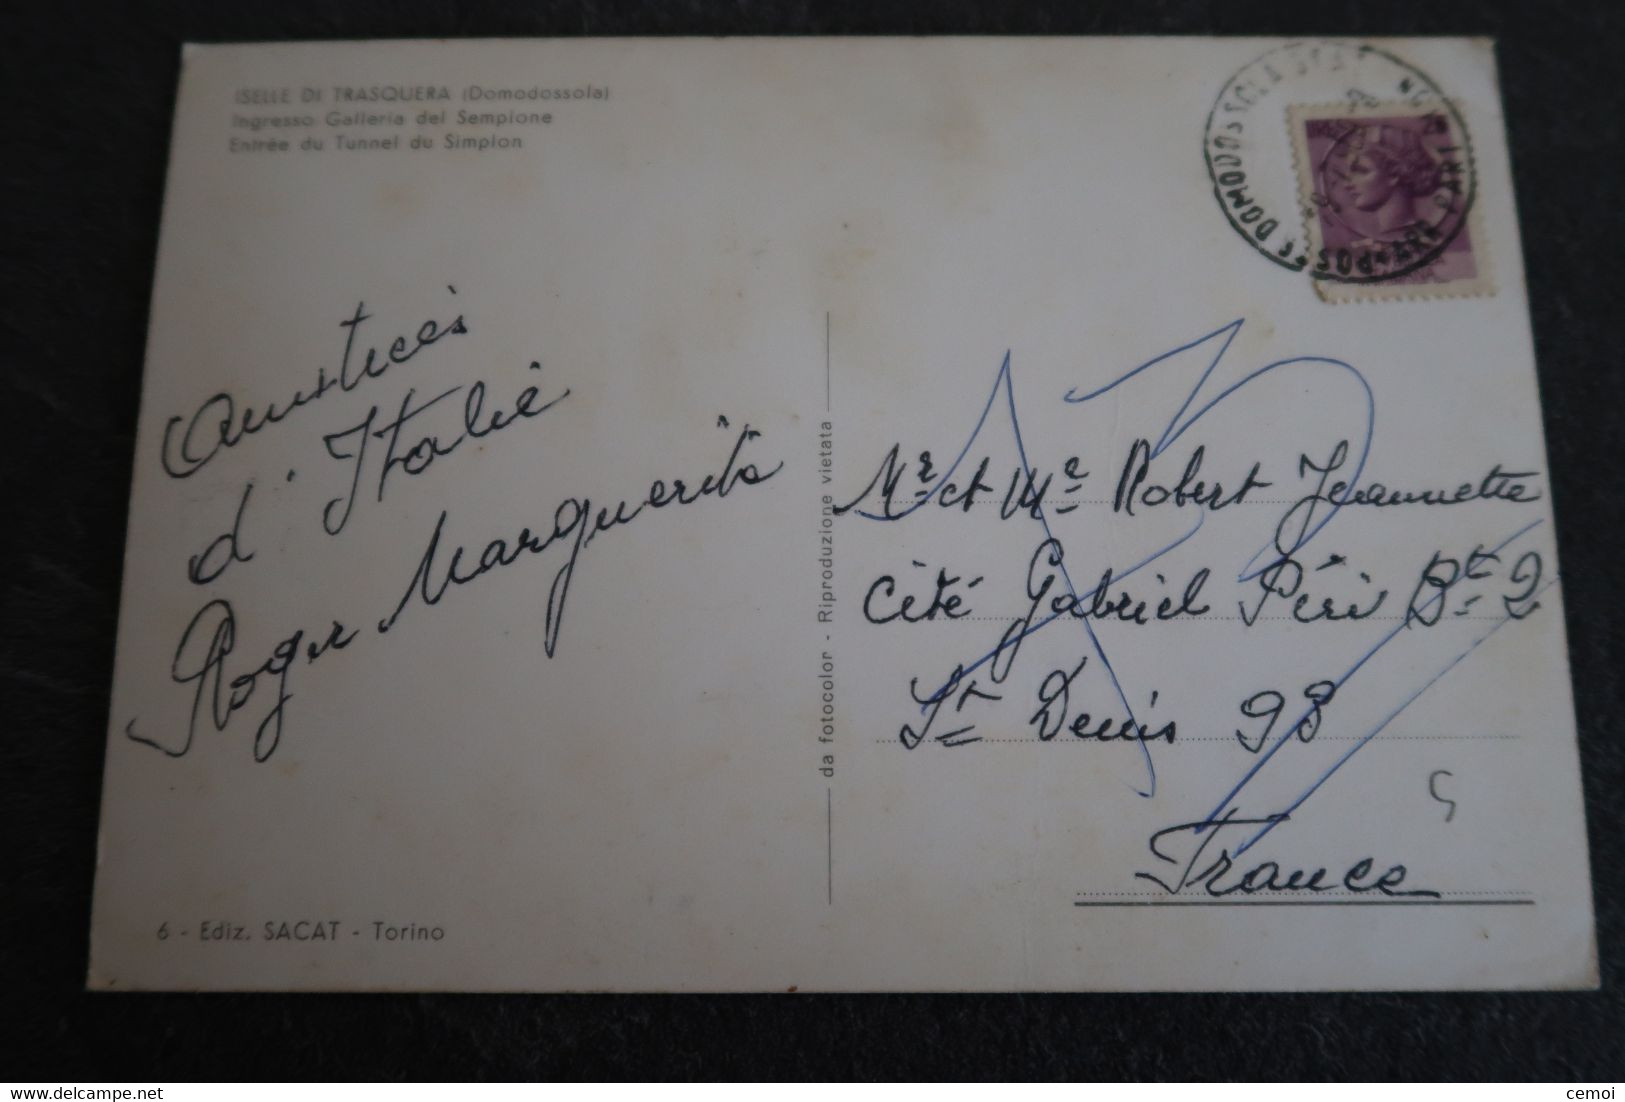 ISELLE DI TRASQUERA (Domodossola)
Ingresso Galleria del Sempione
Entrée du Tunnel du Simplon
Amitiés
d'Italie
Roger Marguerite
6 - Ediz. SACAT - Torino
da fotocolor - Riproduzione vietata
Mr et Me Robert Jeannette
Cité Gabriel Péri Bt 2
St Denis 93
France
DOMODOSSOLA
cemoi